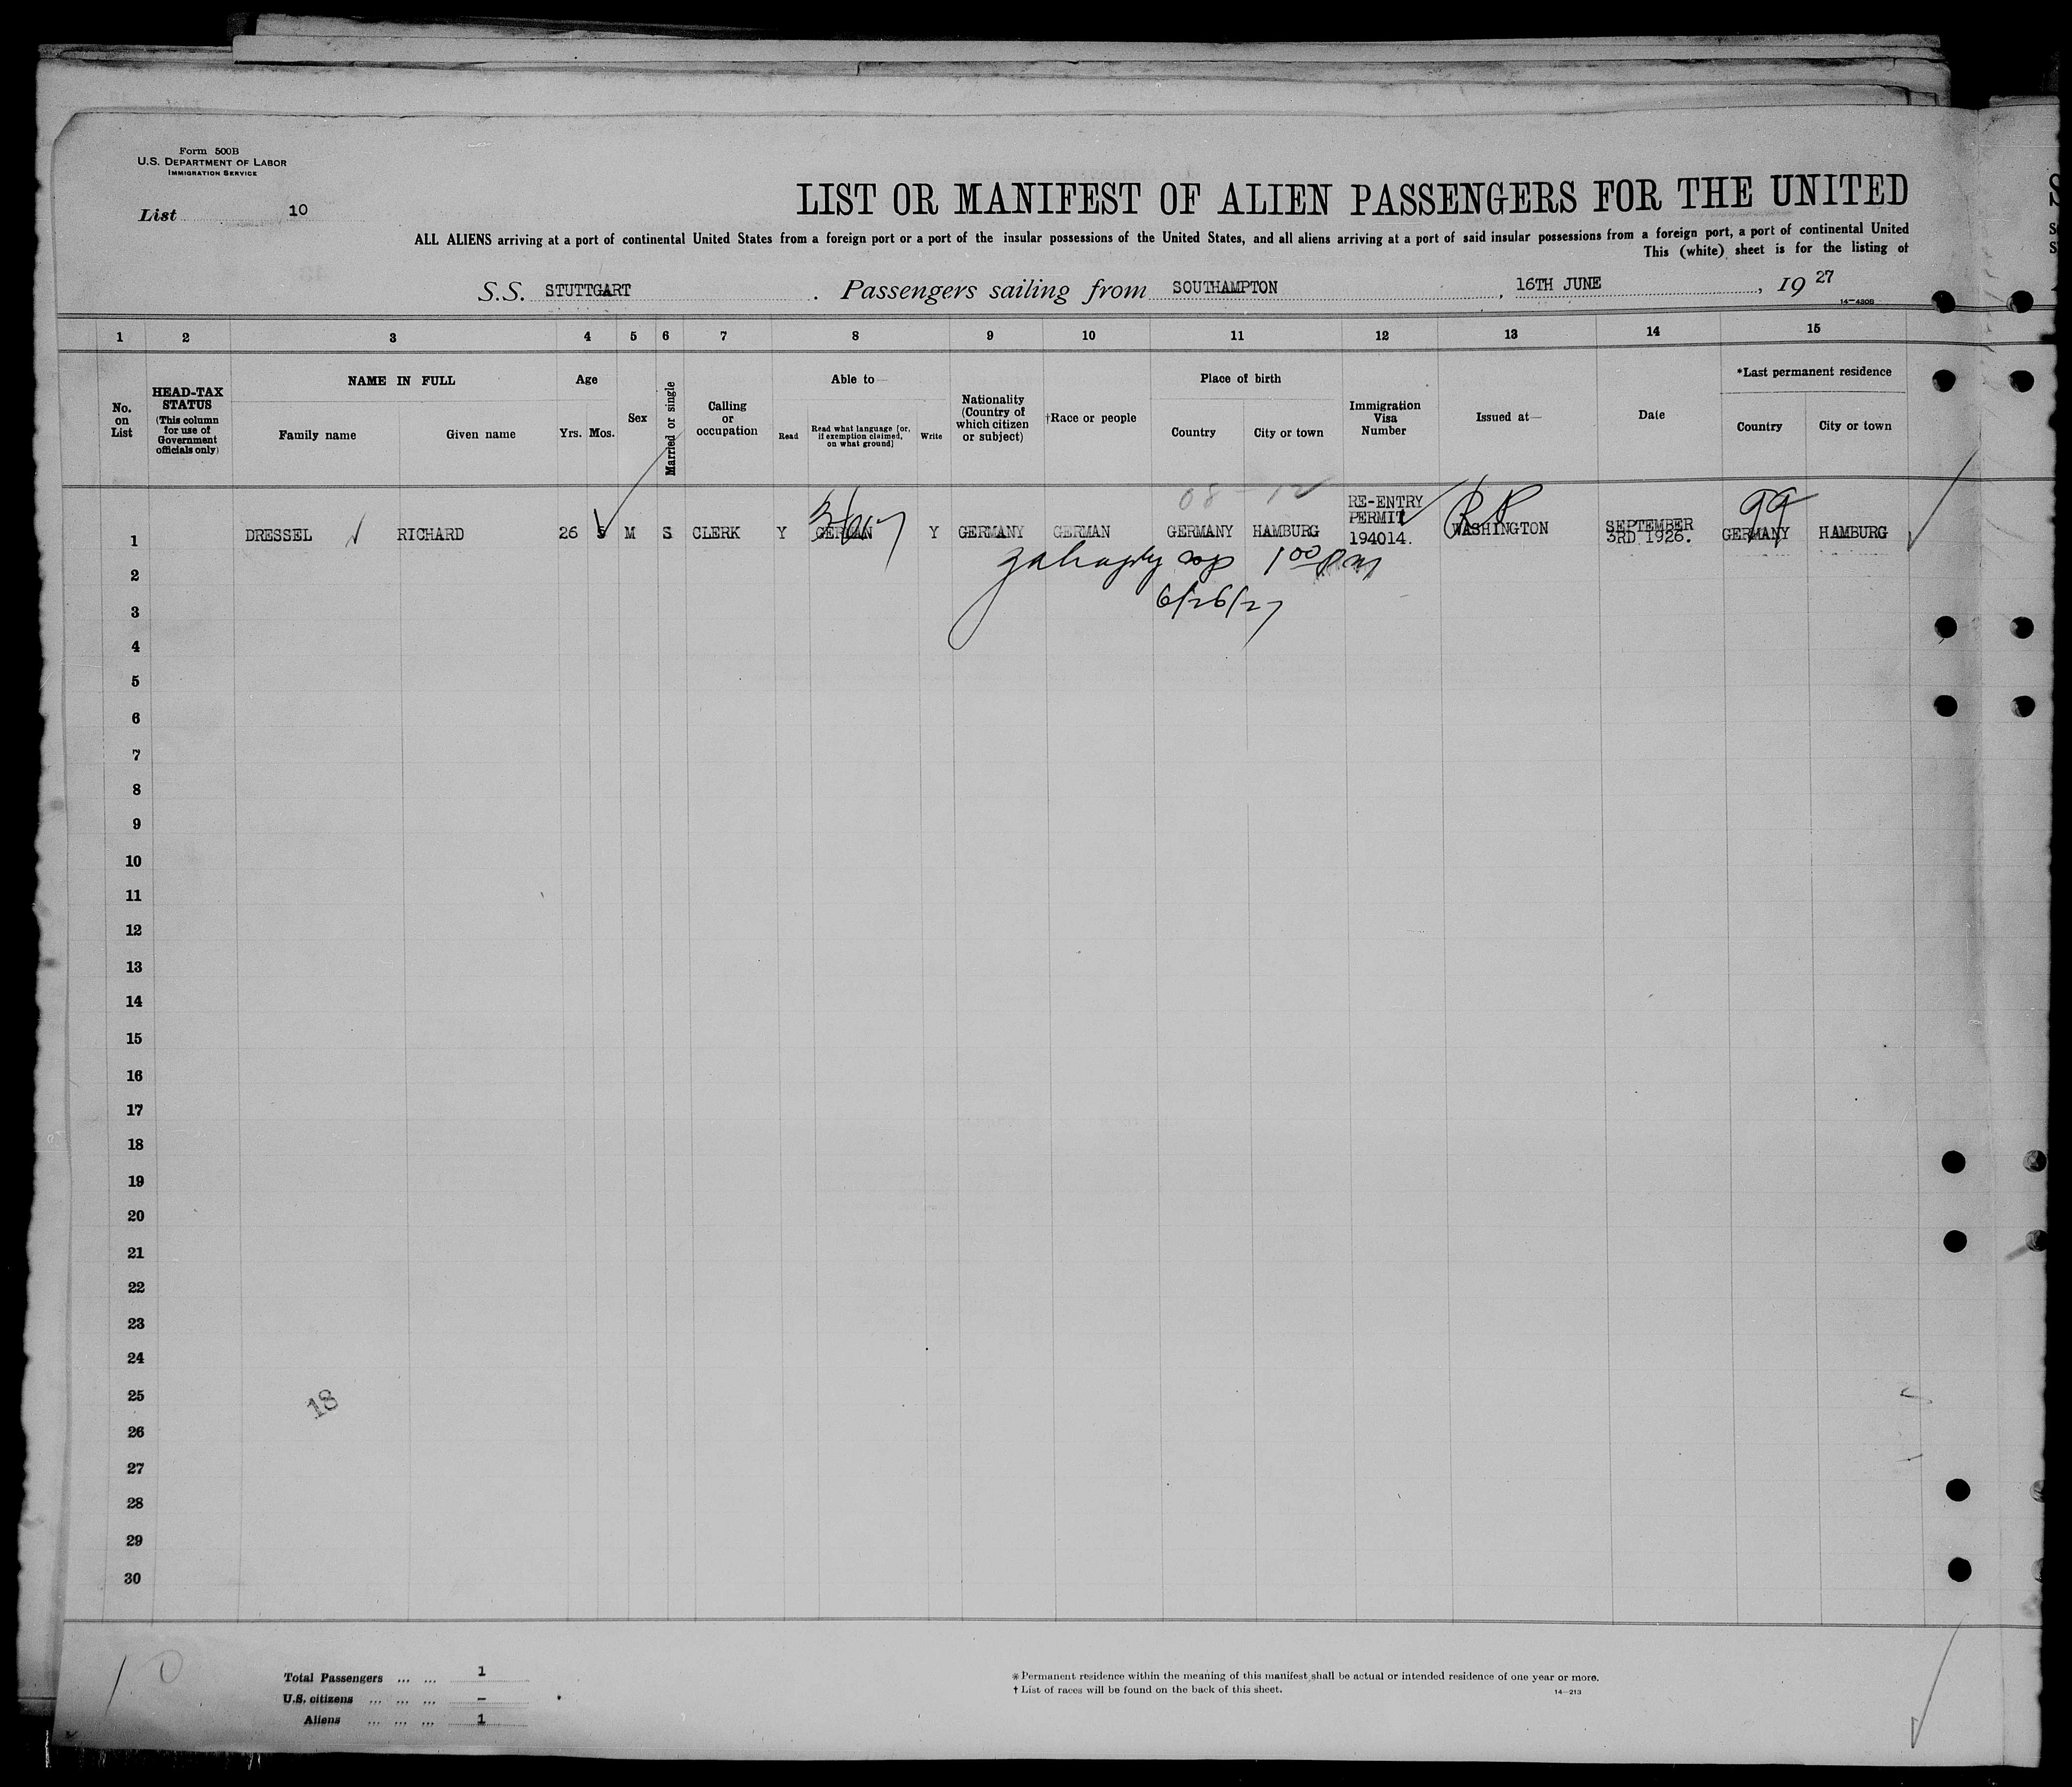 Form 500B
U.S. DEPARTMENT OF LABOR
IMMIGRATION SERVICE
List 10
LIST OR MANIFEST OF ALIEN PASSENGERS FOR THE UNITED
ALL ALIENS arriving at a port of continental United States from a foreign port or a port of the insular possessions of the United States, and all aliens arriving at a port of said insular possessions from a foreign port, a port of continental United
This (white) sheet is for the listing of
S.S. STUTTGART . Passengers sailing from SOUTHAMPTON , 16TH JUNE , 19 27
14-430B
1 2 3 4 5 6 7 8 9 10 11 12 13 14 15
No. on List
HEAD-TAX STATUS (This column for use of Government officials only)
NAME IN FULL
Family name Given name
Age
Yrs. Mos.
Sex
Married or single
Calling or occupation
Able to—
Read
Read what language [or, if exemption claimed, on what ground]
Write
Nationality (Country of which citizen or subject)
†Race or people
Place of birth
Country City or town
Immigration Visa Number
Issued at—
Date
*Last permanent residence
Country City or town
08-12
99
1 DRESSEL RICHARD 26 5 M S CLERK Y GERMAN Y GERMANY GERMAN GERMANY HAMBURG RE-ENTRY PERMIT 194014. WASHINGTON SEPTEMBER 3RD 1926. GERMANY HAMBURG
1 00 pm
6/26/27
2
3
4
5
6
7
8
9
10
11
12
13
14
15
16
17
18
19
20
21
22
23
24
25
18
26
27
28
29
30
10
Total Passengers ... ... 1
U.S. citizens ... ... ... –
Aliens ... ... ... 1
* Permanent residence within the meaning of this manifest shall be actual or intended residence of one year or more.
† List of races will be found on the back of this sheet.
14-213